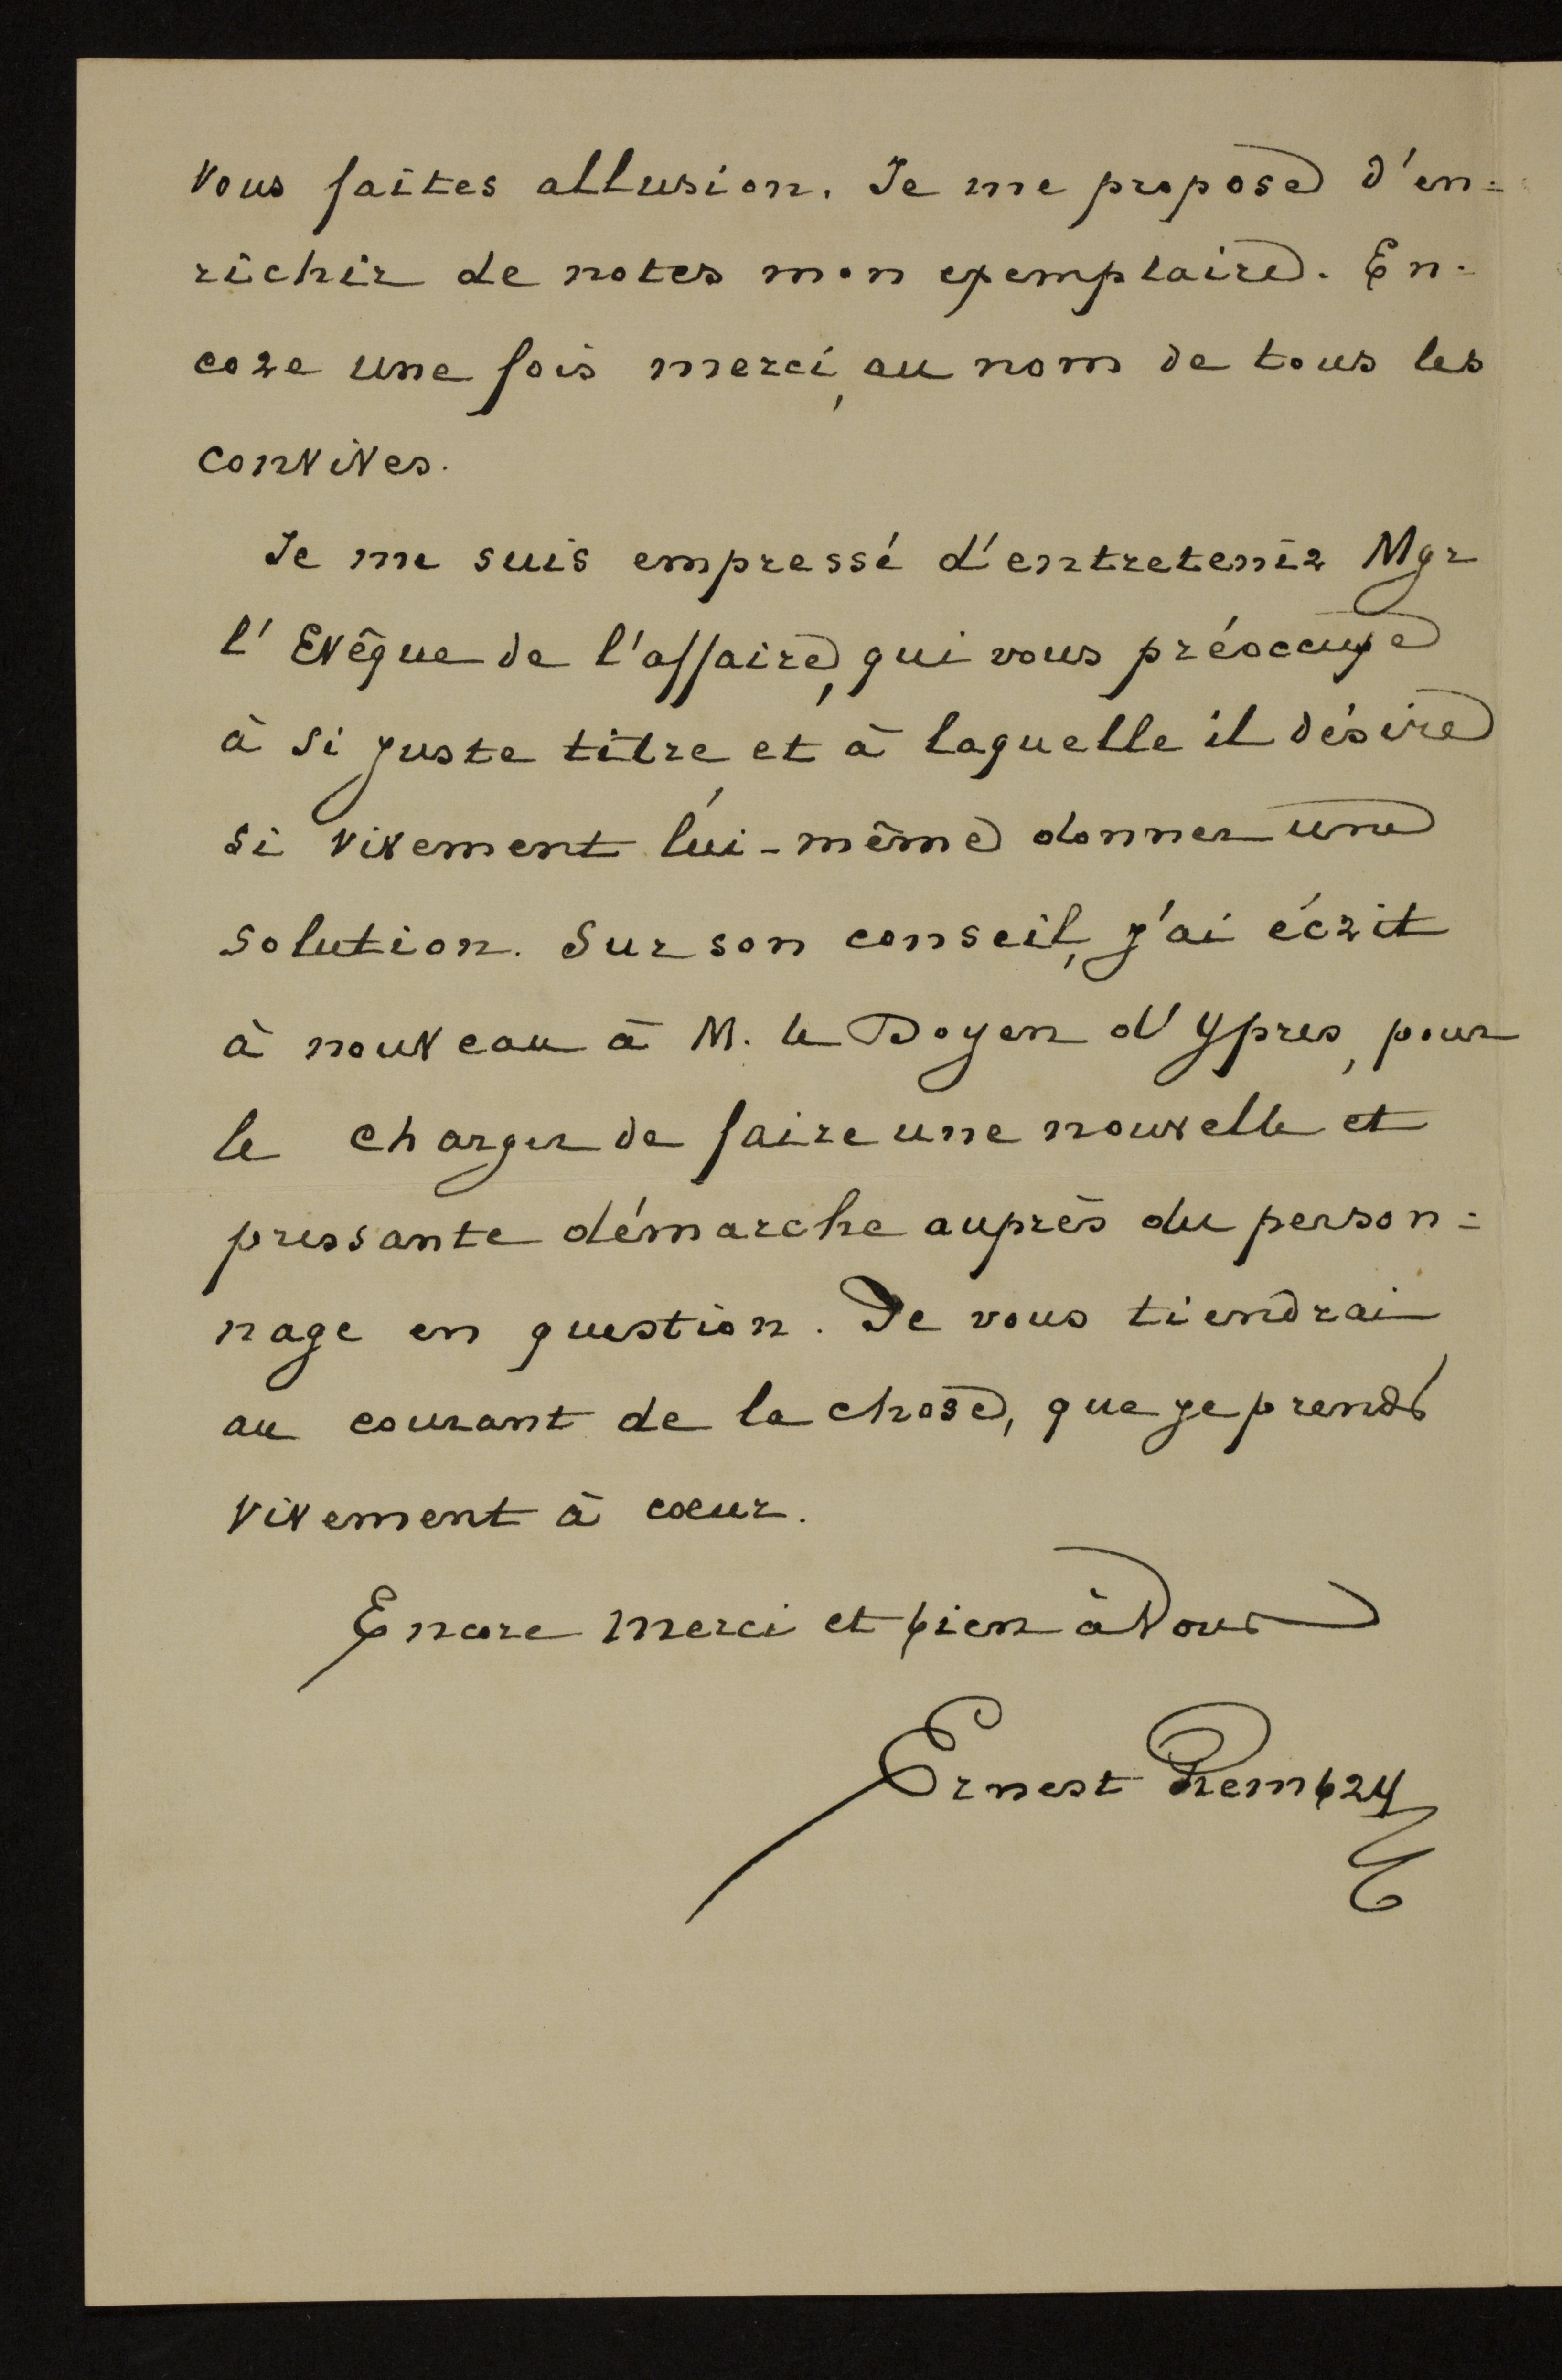 vous faites allusion. Je me propose d'en=
richir de notes mon exemplaire. En-
core une fois merci, au nom de tous les
convives.
Je me suis empressé d'entretenir Mgr
l'Evêque de l'affaire, qui vous préoccupe
à si juste titre et à laquelle il désire
si vivement lui-même donner une
solution. Sur son conseil, j'ai écrit
à nouveau à M. le Doyen d'Ypres, pour
le charger de faire une nouvelle et
pressante démarche auprès du person=
nage en question. Je vous tiendrai
au courant de la chose, que je prends
vivement à coeur.
Encore merci et bien à Vous
Ernest Rembry